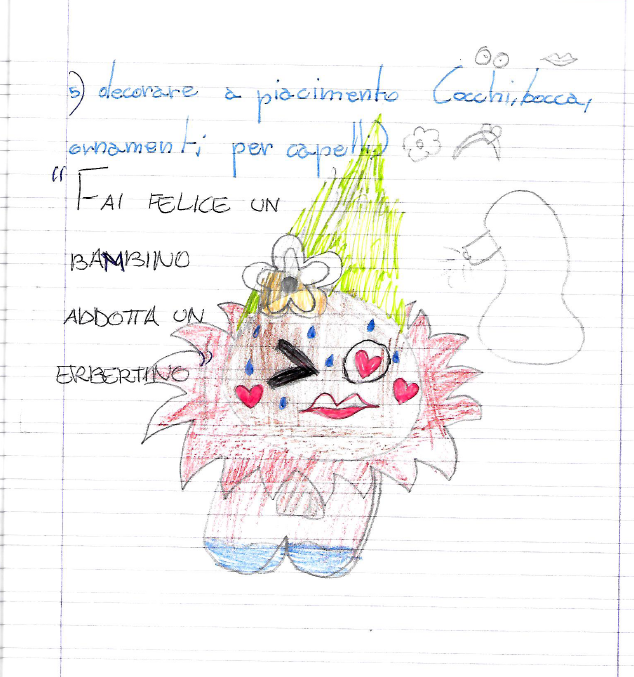 5) decorare a piacimento (occhi, bocca,
ornamenti per capelli)
"FAI FELICE UN
BAMBINO
ADDOTTA UN
ERBERTINO"